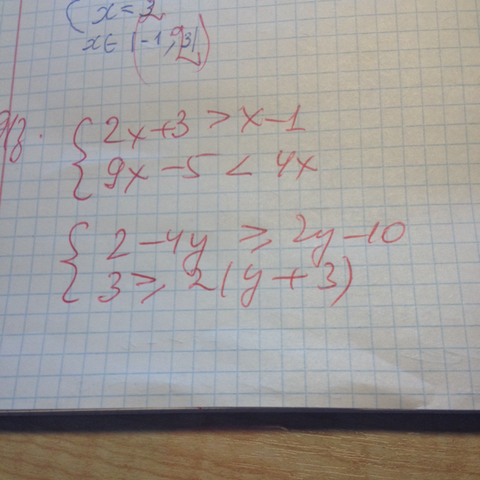 x = 2
x ∈ [-1; 3]
2x+3 > x-1
9x-5 < 4x
2-4y ≥ 2y-10
3 ≥ 2(y+3)